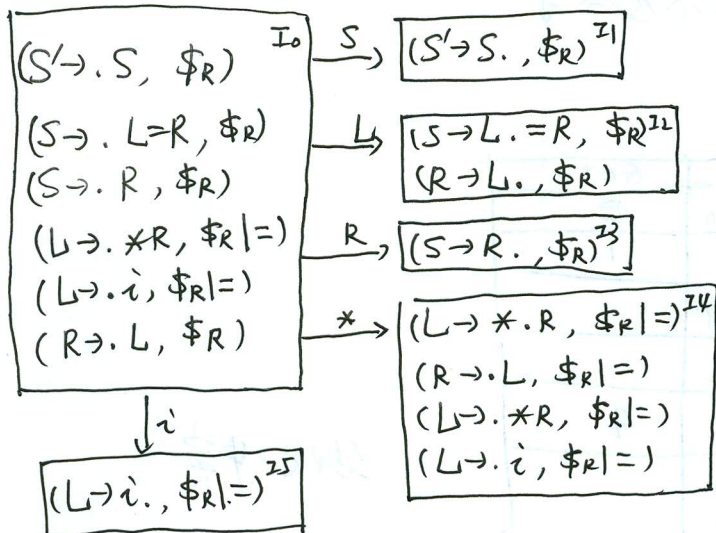 I0
(S'→.S, $R)
(S→.L=R, $R)
(S→.R, $R)
(L→.*R, $R|=)
(L→.i, $R|=)
(R→.L, $R)
S
(S'→S., $R) I1
L
(S→L.=R, $R) I2
(R→L., $R)
R
(S→R., $R) I3
*
(L→*.R, $R|=) I4
(R→.L, $R|=)
(L→.*R, $R|=)
(L→.i, $R|=)
i
(L→i., $R|=) I5